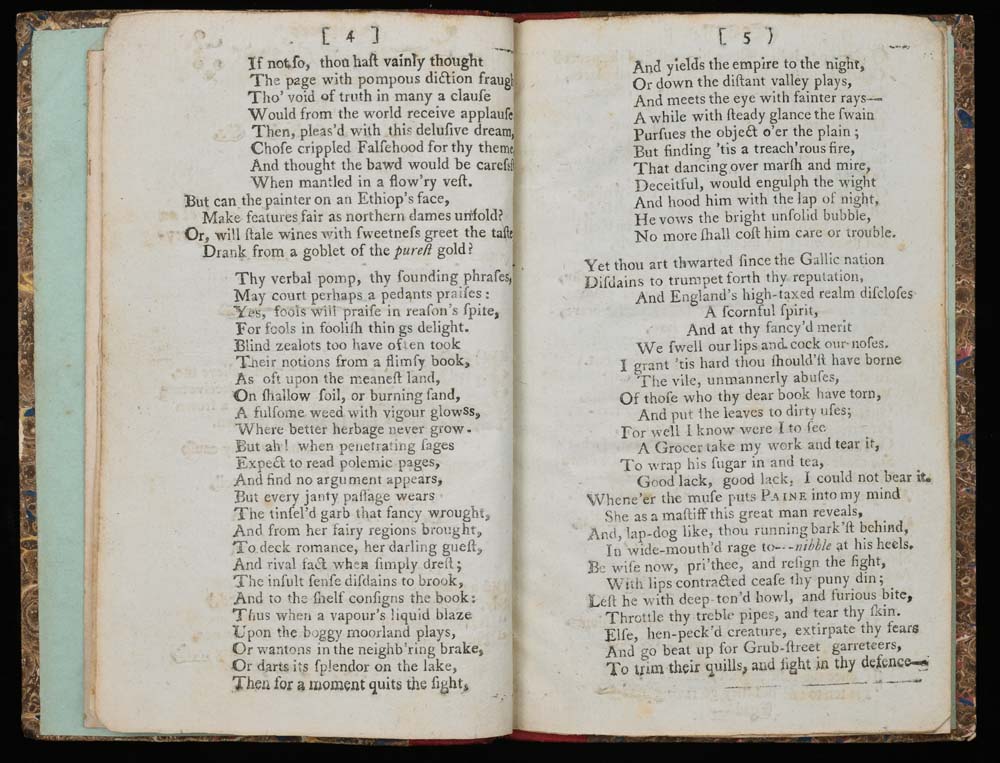 [ 4 ]
If not ſo, thou haſt vainly thought
The page with pompous diction fraug
Tho' void of truth in many a clauſe
Would from the world receive applauſe
Then, pleas'd with this deluſive dream,
Choſe crippled Falſehood for thy theme
And thought the bawd would be careſsſ
When mantled in a flow'ry veſt.
But can the painter on an Ethiop's face,
Make features fair as northern dames unfold?
Or, will ſtale wines with ſweetneſs greet the taſte
Drank from a goblet of the pureſt gold?
Thy verbal pomp, thy ſounding phraſes,
May court perhaps a pedants praiſes:
Yes, fools will praiſe in reaſon's ſpite,
For fools in fooliſh thin gs delight.
Blind zealots too have often took
Their notions from a flimſy book,
As oft upon the meaneſt land,
On ſhallow ſoil, or burning ſand,
A fulſome weed with vigour glowss,
Where better herbage never grow.
But ah! when penetrating ſages
Expect to read polemic pages,
And find no argument appears,
But every janty paſſage wears
The tinſel'd garb that fancy wrought,
And from her fairy regions brought,
To deck romance, her darling gueſt,
And rival fact when ſimply dreſt;
The inſult ſenſe diſdains to brook,
And to the ſhelf conſigns the book:
Thus when a vapour's liquid blaze
Upon the boggy moorland plays,
Or wantons in the neighb'ring brake,
Or darts its ſplendor on the lake,
Then for a moment quits the ſight,
[ 5 )
And yields the empire to the night,
Or down the diſtant valley plays,
And meets the eye with fainter rays—
A while with ſteady glance the ſwain
Purſues the object o'er the plain;
But finding 'tis a treach'rous fire,
That dancing over marſh and mire,
Deceitful, would engulph the wight
And hood him with the lap of night,
He vows the bright unſolid bubble,
No more ſhall coſt him care or trouble.
Yet thou art thwarted ſince the Gallic nation
Diſdains to trumpet forth thy reputation,
And England's high-taxed realm diſcloſes
A ſcornful ſpirit,
And at thy fancy'd merit
We ſwell our lips and cock our noſes.
I grant 'tis hard thou ſhould'ſt have borne
The vile, unmannerly abuſes,
Of thoſe who thy dear book have torn,
And put the leaves to dirty uſes;
For well I know were I to ſee
A Grocer take my work and tear it,
To wrap his ſugar in and tea,
Good lack, good lack, I could not bear it.
Whene'er the muſe puts PAINE into my mind
She as a maſtiff this great man reveals,
And, lap-dog like, thou running bark'ſt behind,
In wide-mouth'd rage to---nibble at his heels.
Be wiſe now, pri'thee, and reſign the fight,
With lips contracted ceaſe thy puny din;
Leſt he with deep-ton'd howl, and furious bite,
Throttle thy treble pipes, and tear thy ſkin.
Elſe, hen-peck'd creature, extirpate thy fears
And go beat up for Grub-ſtreet garreteers,
To trim their quills, and fight in thy defence—